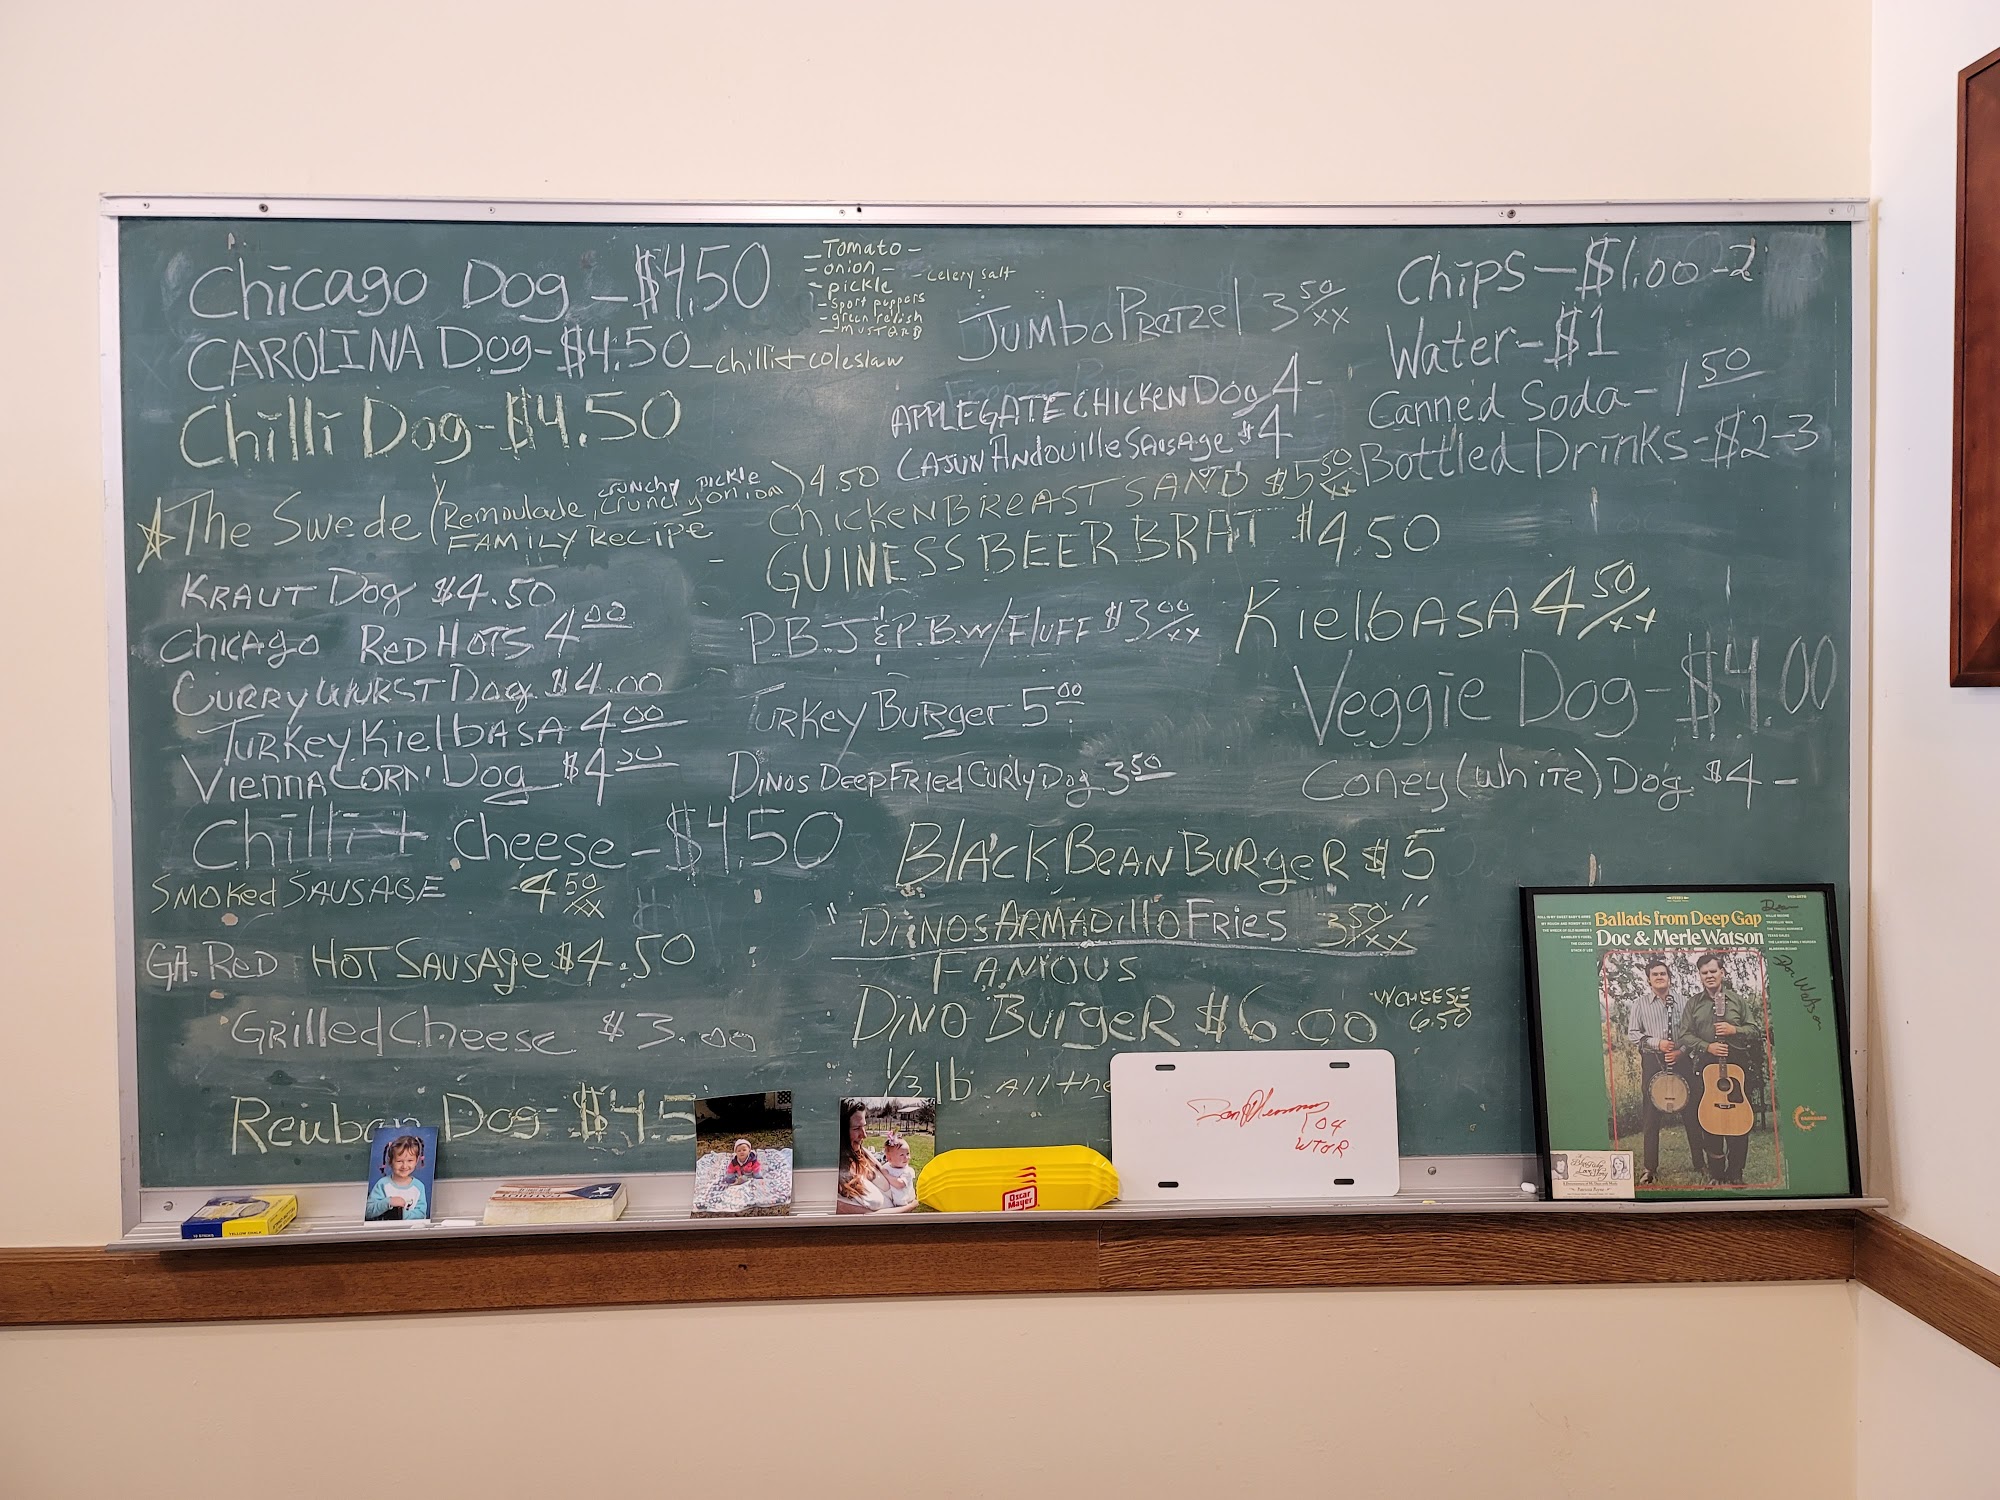 Chicago Dog - $4.50
- Tomato -
- onion -
- celery salt
- pickle
- sport peppers
- green relish
- MUSTARD
CAROLINA Dog - $4.50 - chilli + coleslaw
Chilli Dog - $4.50
The Swede (Remoulade, crunchy pickle
crunchy onion) 4.50
FAMILY Recipe
KRAUT Dog $4.50
CHICAGO RED HOTS 4.00
CURRYWURST Dog $4.00
TURKEY KielbASA 4.00
Vienna CORN Dog $4
Chilli + Cheese - $4.50
SMOKed SAUSAGE 4.50/xx
GA. Red HOT SAUSAge $4.50
GRilled Cheese $3.00
Reuban Dog - $4.5
JUMbO PRETZel 3.50/xx
APPLEGATE CHICKEN Dog 4-
CAJUN ANdouille SAUSAge $4
ChickeN BREAST SAND $5.50/xx
GUINESS BEER BRAT $4.50
P.B.J & P.B. W/ FluFF $3.00/xx
TURKey BURgeR 5.00
DINOS DeepFRied CURly Dog 3.50
BlACK BeAN BURgeR $5
"DiNOS ARMADillO FRies 3.50/xx"
FAMOUS
DINO BURgeR $6.00
W/CHEESE
6.50
1/3 lb. All the
Chips - $1.00 - 2
Water - $1
Canned Soda - 1.50
Bottled Drinks - $2-3
KielbASA 4.50/xx
Veggie Dog - $4.00
Coney (white) Dog $4 -
YELLOW CHALK
Oscar
Mayer
04
WTOR
Ballads from Deep Gap
Doc & Merle Watson
Doc Watson